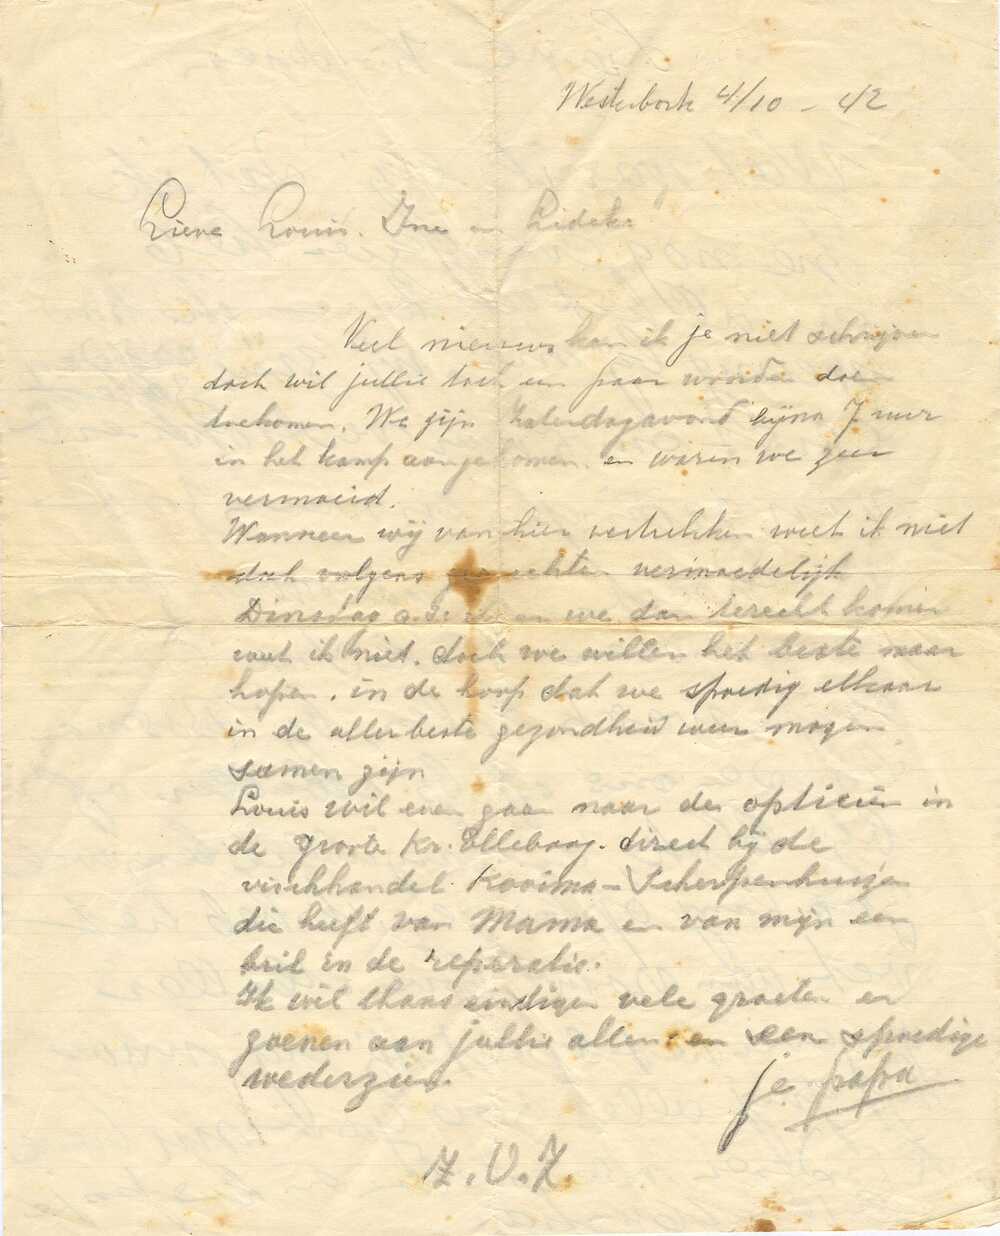 Westerbork 4/10 - 42
Lieve Louis. Ine en Lideke
Veel nieuws kan ik je niet schrijven
doch wil jullie toch een paar woorden doen
toekomen. We zijn Zaterdagavond bijna 7 uur
in het kamp aangekomen. en waren we zeer
vermoeid.
Wanneer wij van hier vertrekken weet ik niet
doch volgens vermoedelijk
Dinsdag a.s. en we dan terecht komen
weet ik niet. doch we willen het beste maar
hopen. in de hoop dat we spoedig elkaar
in de allerbeste gezondheid weer mogen
samen zijn
Louis wil even gaan naar de opticiën in
de Groote Kr. Elleboog. direct bij de
vischhandel Kooima - Scherpenhuizen
die heeft van Mama en van mijn een
bril in de reparatie.
Ik wil thans eindigen vele groeten en
zoenen aan jullie allen. en een spoedige
wederzien.
je papa
Z.O.Z.